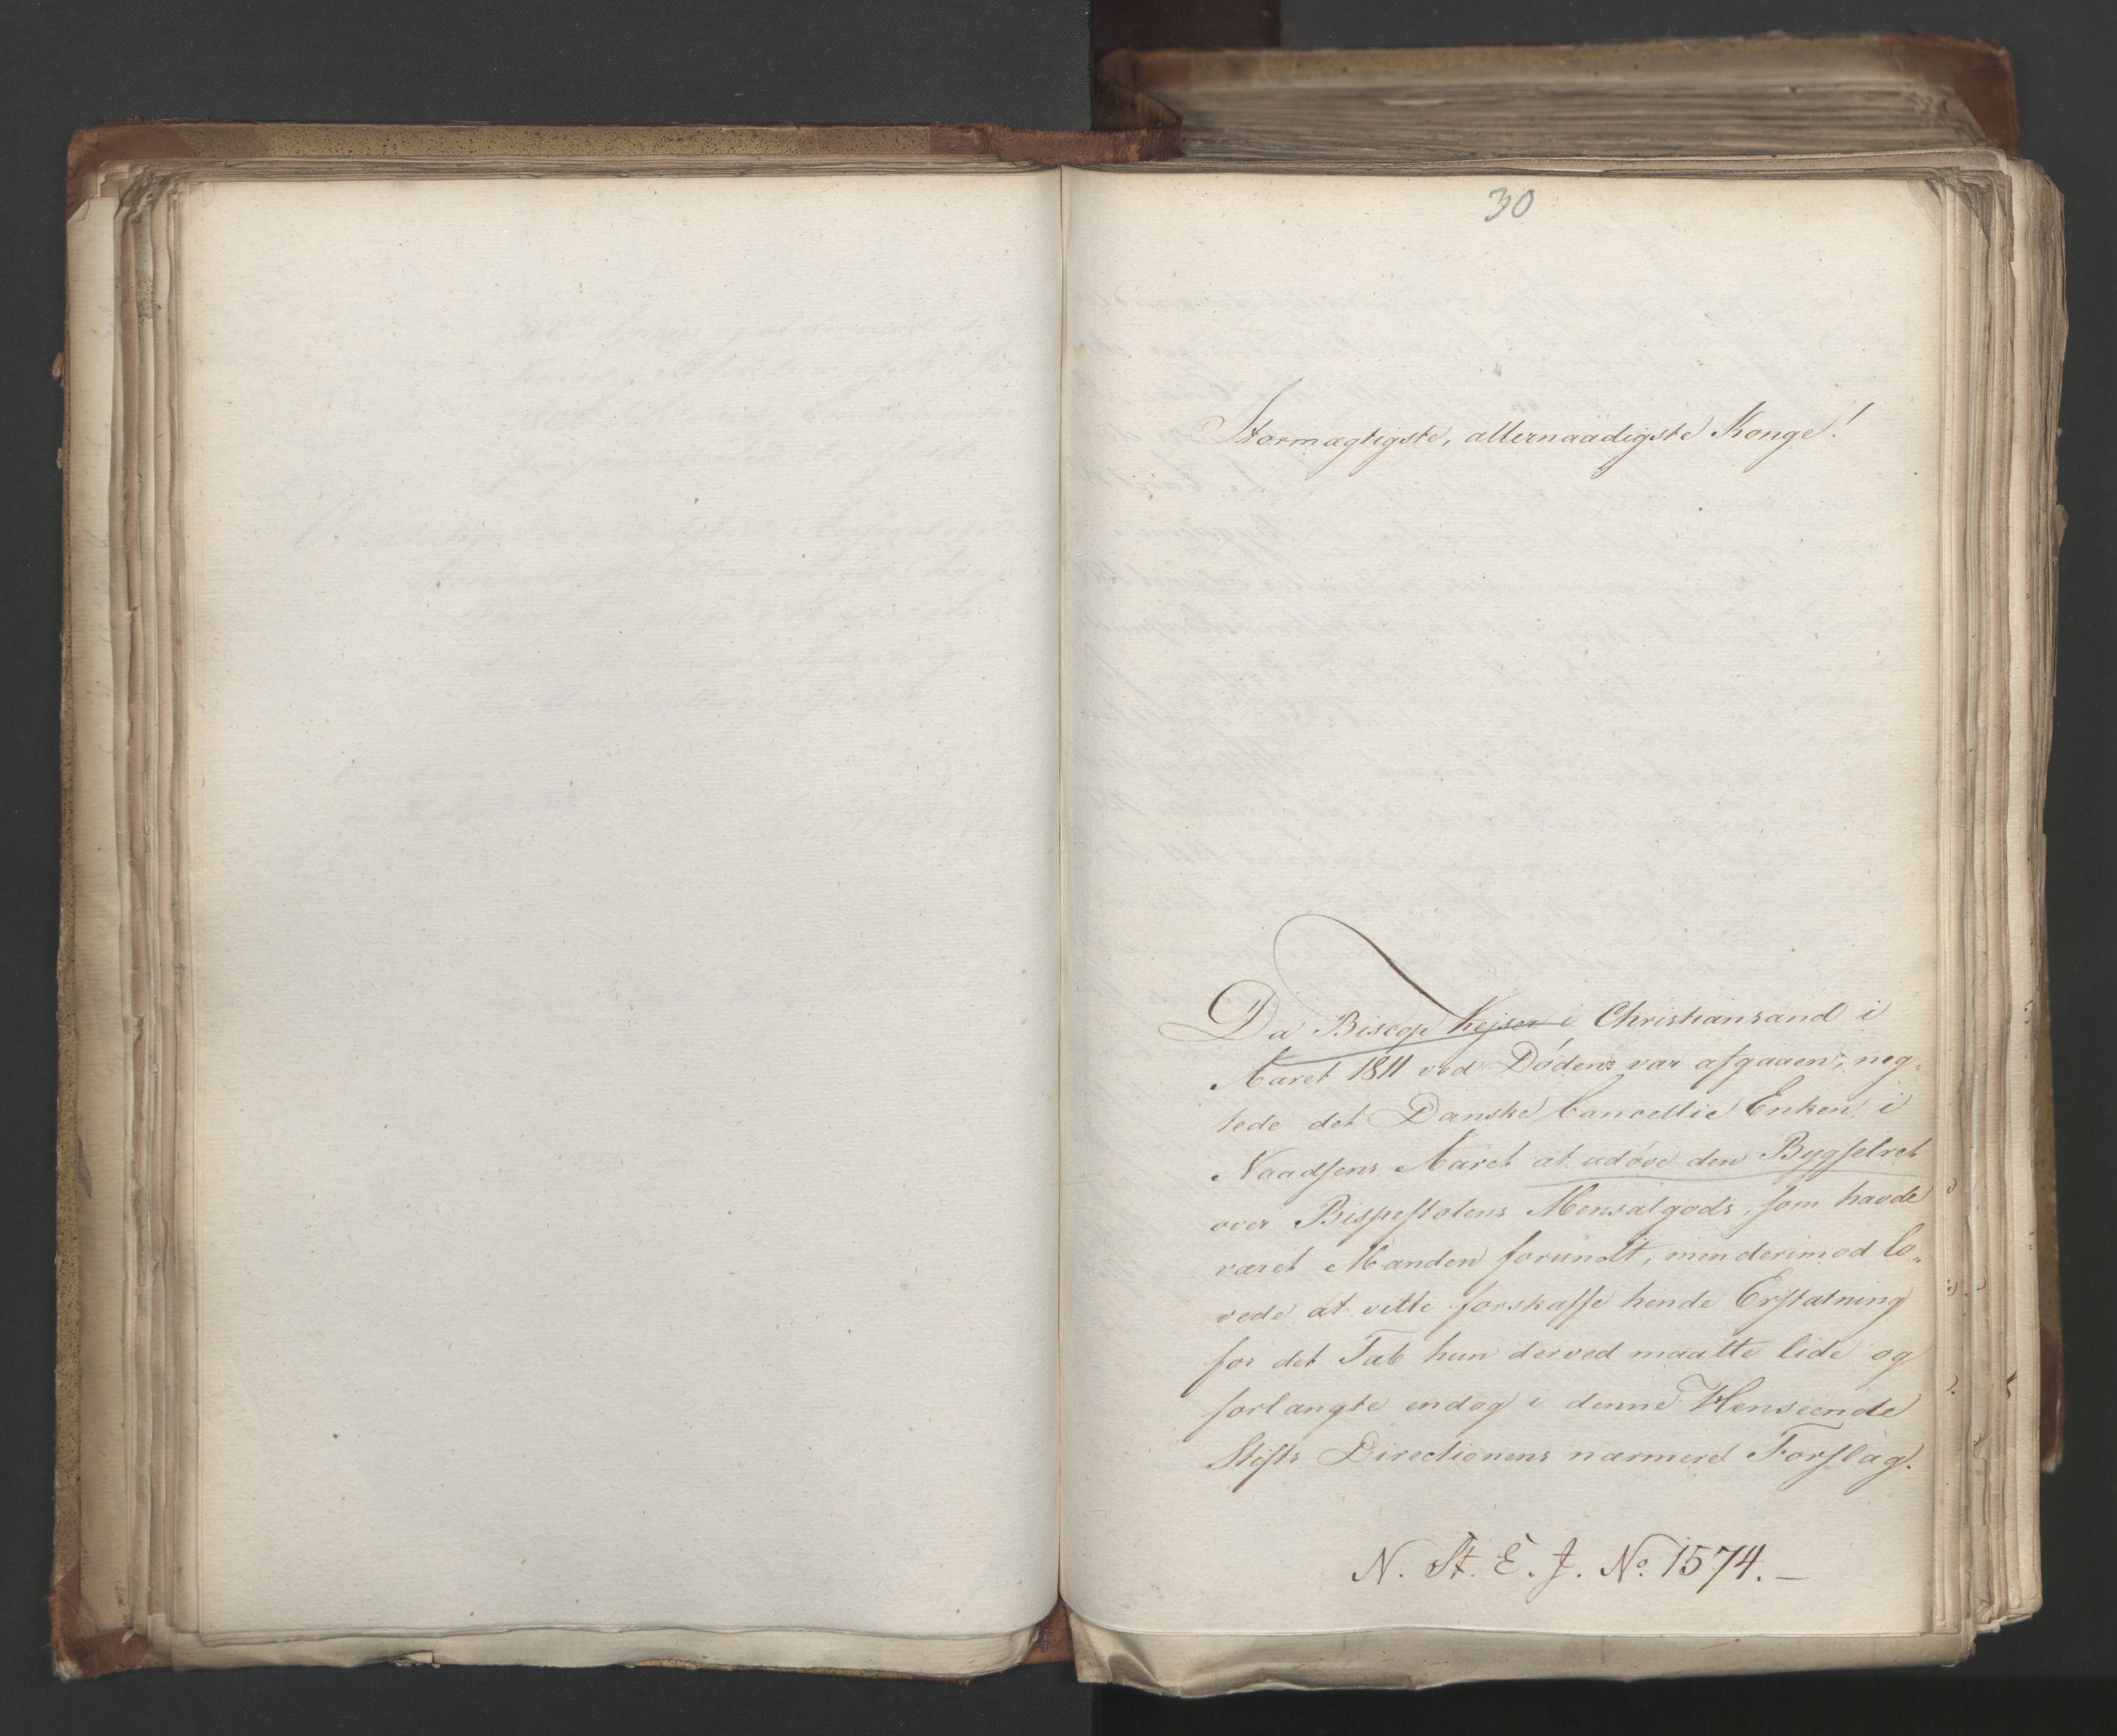 30
Stormægtigste, allernaadigste Konge!
Da Biscop Keyser i Christiansand i
Aaret 1811 ved Døden var afgaaen, neg-
tede det Danske Cancellie Enken i
Naadsens Aaret at udøve den Bygselret
over Bispestolens Mensalgods, som havde
været Manden forundt, men derimod lo-
vede at ville forskaffe hende Erstatning
for det Tab hun derved maatte lide og
forlangte endog i denne Henseende
Stifts Directionens nærmere Forslag.
N. St. E. J. No. 1574. —